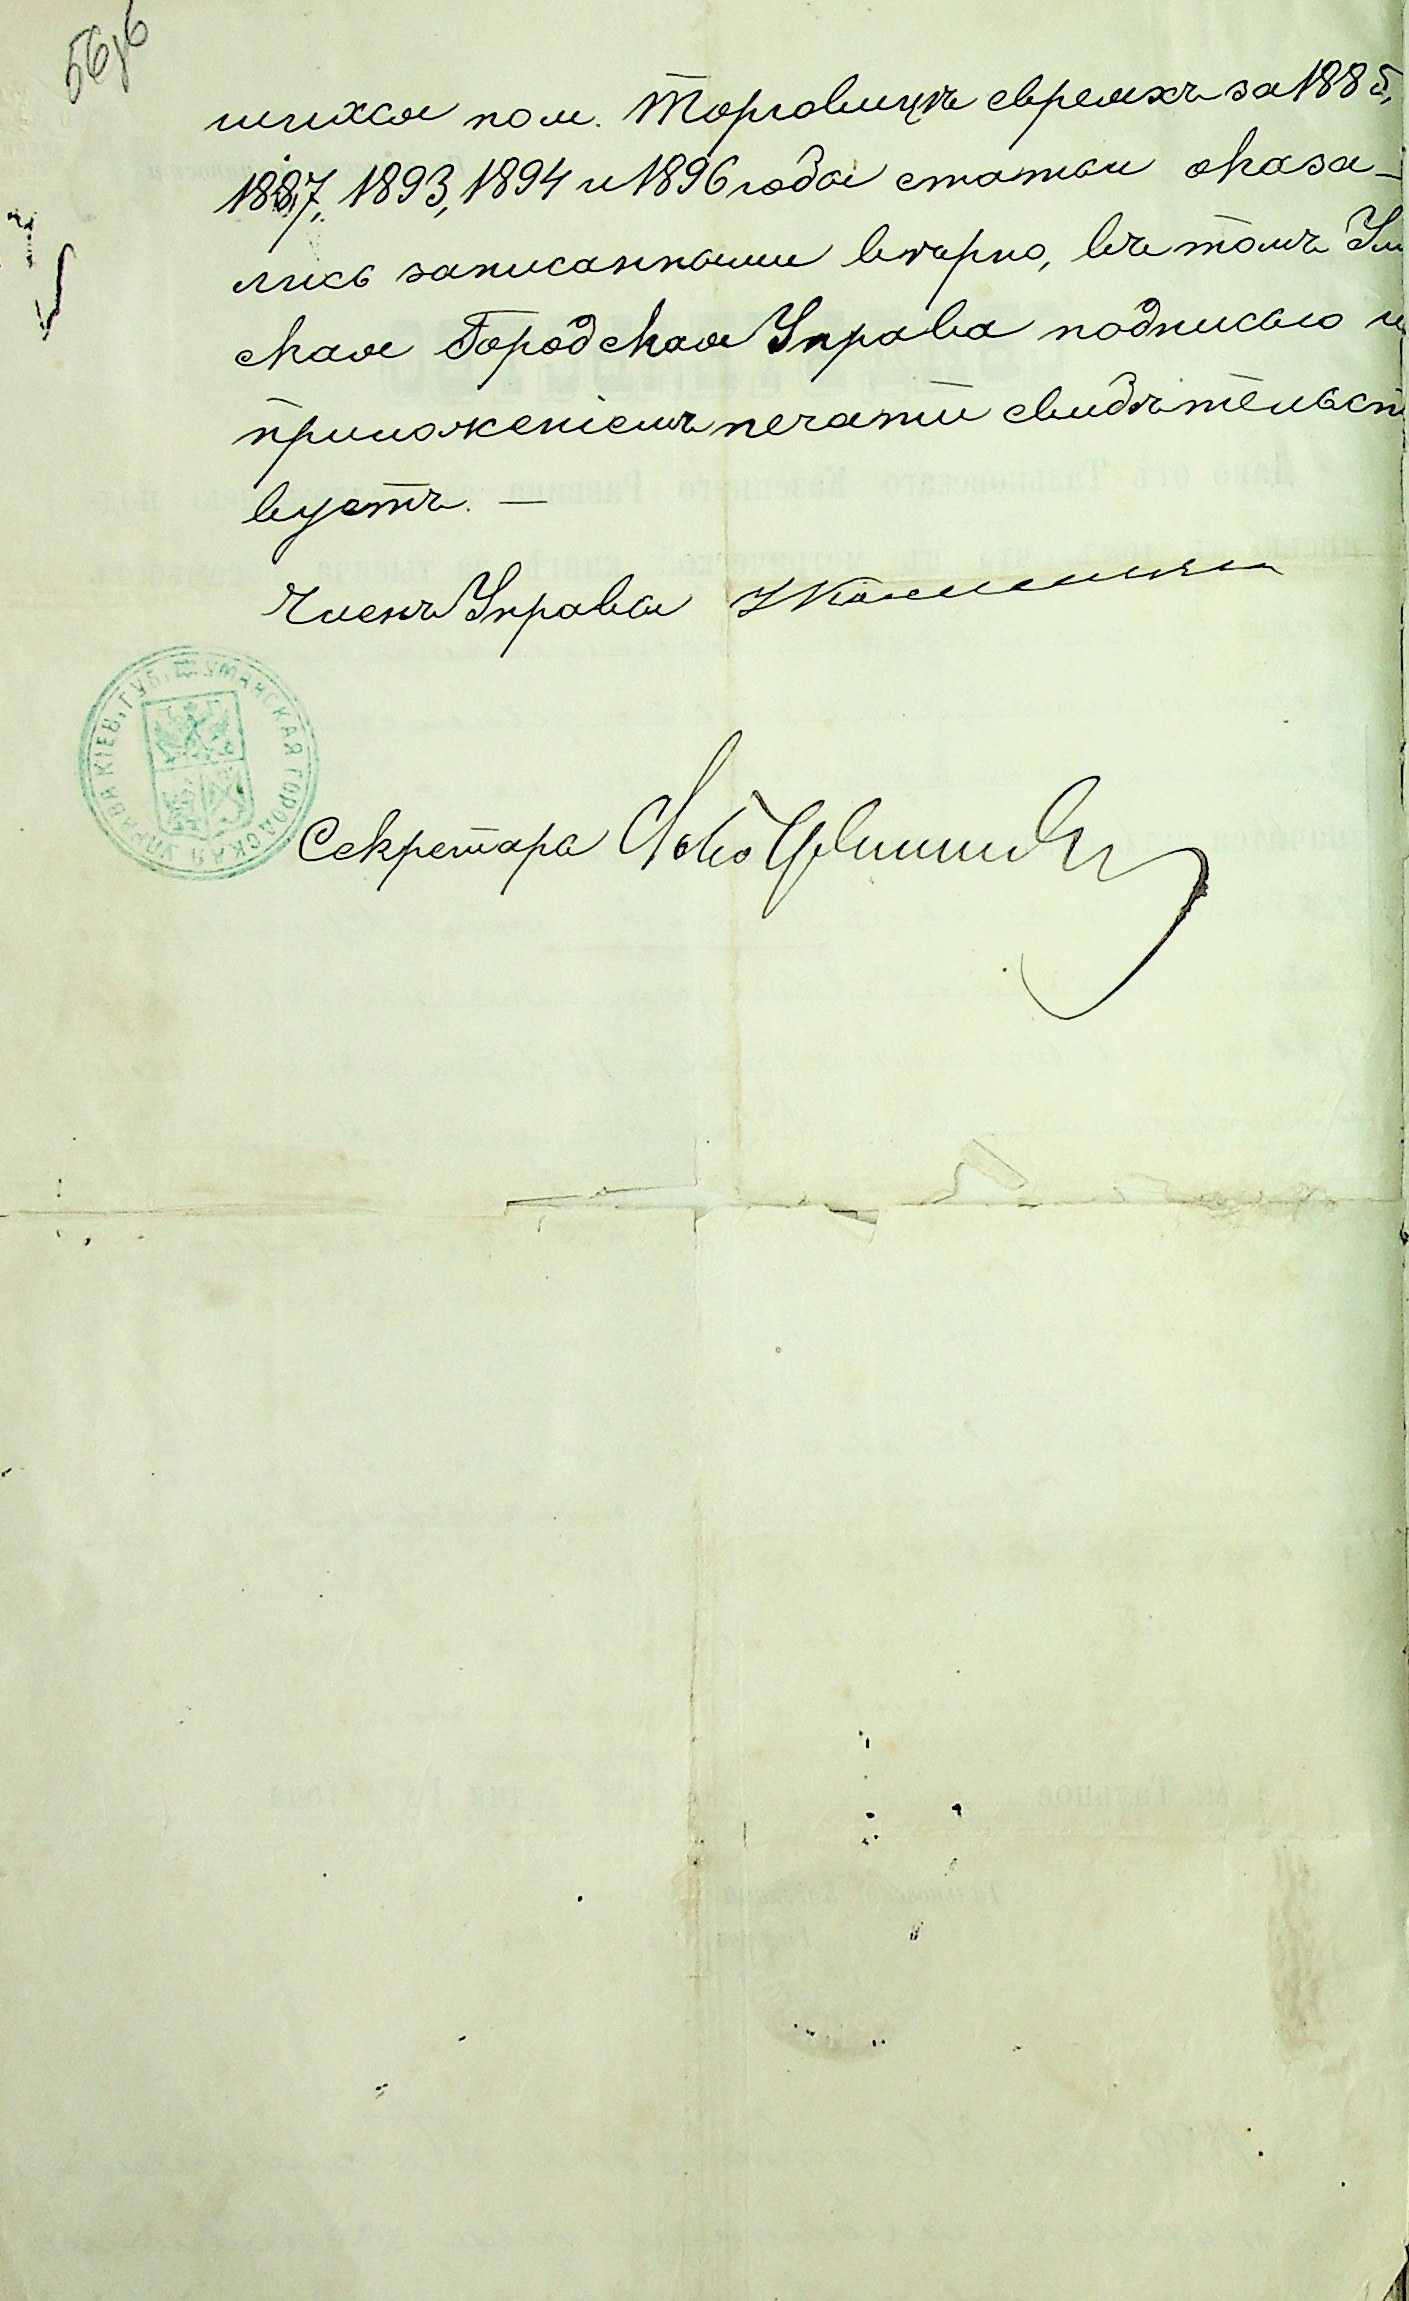 56об
шихся по м. Торговицѣ евреяхъ за 1885,
1887, 1893, 1894 и 1896 годы статьи оказа-
лись записанными вѣрно, въ томъ Ум
ская Городская Управа подписью и
приложеніемъ печати свидѣтельст
вуетъ. —
Членъ Управы
УМАНСКАЯ ГОРОДСКАЯ УПРАВА КІЕВ. ГУБ.
Секретарь